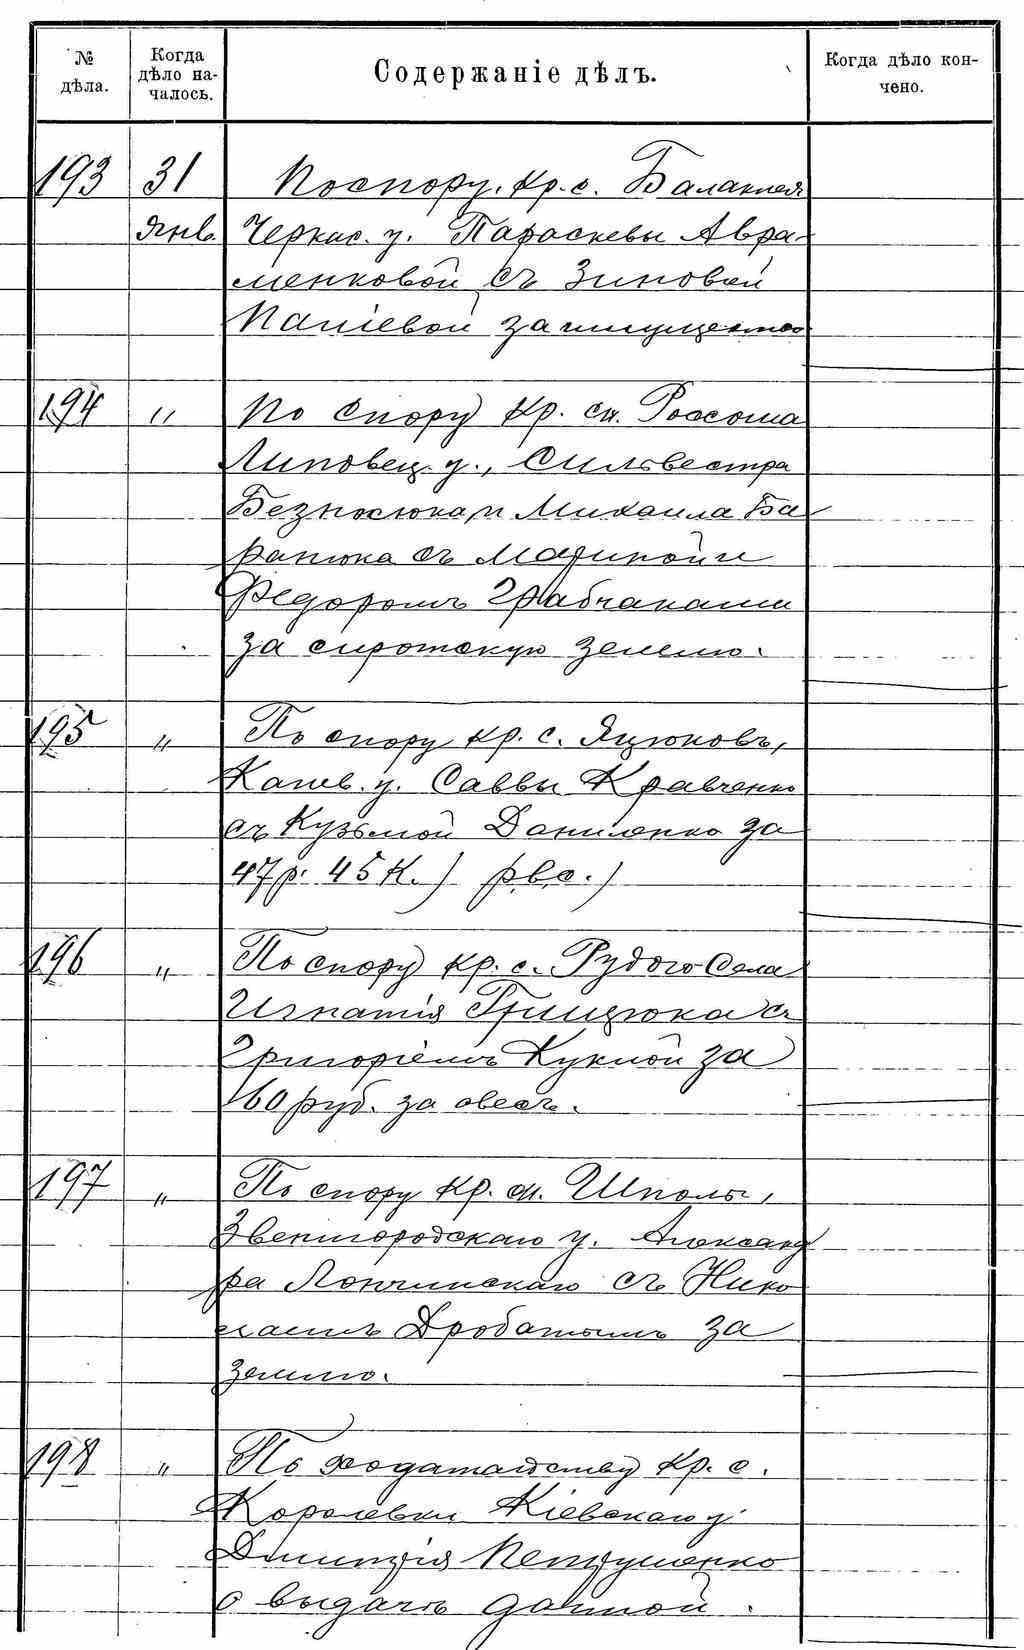 № дѣла.
Когда дѣло на-
чалось.
Содержаніе дѣлъ.
Когда дѣло кон-
чено.
193 31 По спору кр. с. Балаклея
Янв. Черкас. у. Параскевы Авра-
менковой съ Зиновіей
Паліевой за имущество
194 " По спору кр. с. Россоша
Липовец. у., Сильвестра
Безносюка, и Михаила Ба
ранюка съ Мариной и
Федоромъ Грабчаками
за сиротскую землю.
195 " По спору кр. с. Яцюковъ,
Канев. у. Саввы Кравченко
съ Кузьмой Даниленко за
47 р. 45 к.)
196 " По спору кр. с. Рудого Села
Игнатія Грицюка съ
Григоріемъ Куклой за
60 руб. за овесъ.
197 " По спору кр. м. Шполы,
Звенигородскаго у. Александ
ра Лончинскаго съ Нико
лаемъ Дробатымъ за
землю.
198 " По ходатайству кр. с.
Королевки Кіевскаго у.
Дмитрія Петрушенко
о выдачѣ данной.